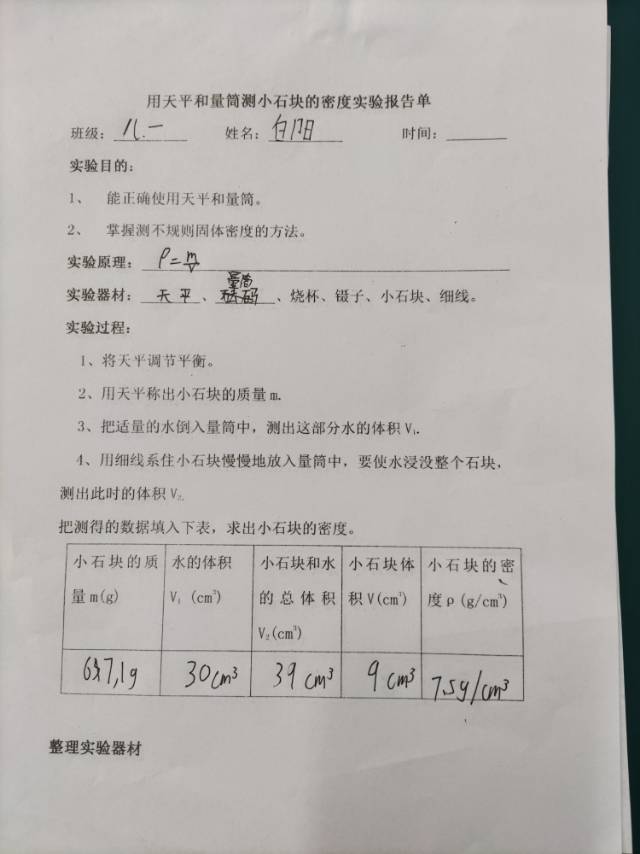 用天平和量筒测小石块的密度实验报告单
班级：八.一 姓名：白阳 时间：
实验目的：
1、 能正确使用天平和量筒。
2、 掌握测不规则固体密度的方法。
实验原理： ρ=m/V
量筒
实验器材： 天平 、 砝码 、烧杯、镊子、小石块、细线。
实验过程：
1、将天平调节平衡。
2、用天平称出小石块的质量 m.
3、把适量的水倒入量筒中，测出这部分水的体积 V₁.
4、用细线系住小石块慢慢地放入量筒中，要使水浸没整个石块，
测出此时的体积 V₂.
把测得的数据填入下表，求出小石块的密度。
小石块的质 水的体积 小石块和水 小石块体 小石块的密
量 m(g) V₁ (cm³) 的总体积 积 V(cm³) 度 ρ (g/cm³)
V₂(cm³)
30cm³ 39 cm³ 9 cm³ 7.5g/cm³
整理实验器材